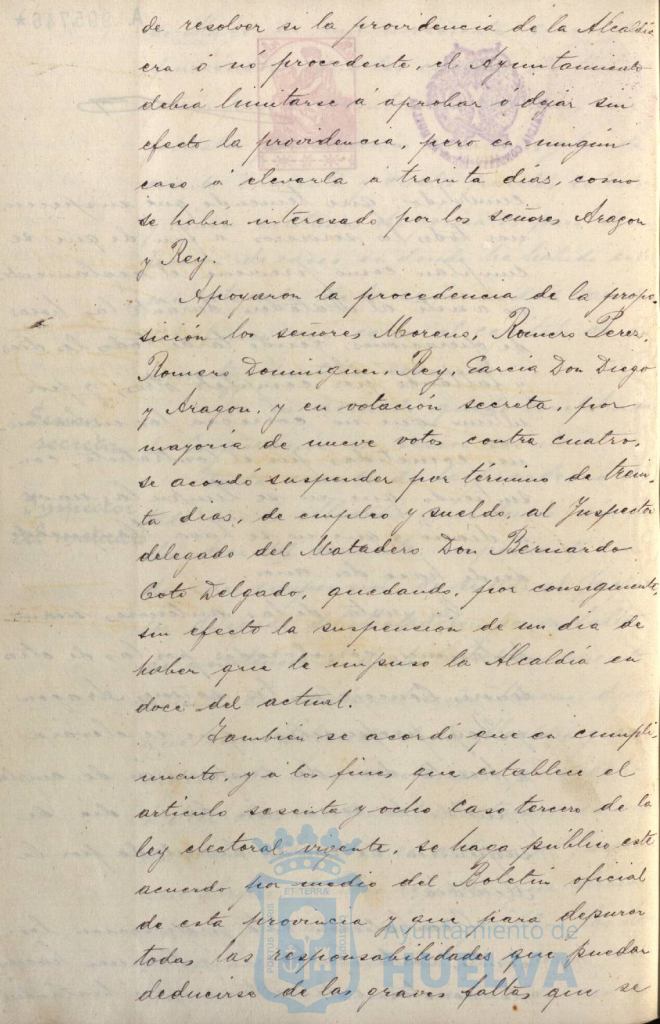 de resolver si la providencia de la Alcaldía
era ó nó procedente, el Ayuntamiento
debía limitarse á aprobar ó dejar sin
efecto la providencia, pero en ningún
caso á elevarla á treinta días, como
se había interesado por los señores Aragon
y Rey.
Apoyaron la procedencia de la propo-
sición los señores Moreno, Romero Perez,
Romero Dominguez, Rey, Garcia Don Diego
y Aragon, y en votación secreta, por
mayoría de nueve votos contra cuatro,
se acordó suspender por término de trein-
ta dias, de empleo y sueldo, al Inspector
delegado del Matadero Don Bernardo
Coto Delgado, quedando, por consiguiente,
sin efecto la suspensión de un dia de
haber que le impuso la Alcaldía en
doce del actual.
También se acordó que en cumpli-
miento, y á los fines que establece el
artículo sesenta y ocho caso tercero de la
ley electoral vigente, se haga público este
acuerdo por medio del Boletin oficial
de esta provincia y que para depurar
todas las responsabilidades que puedan
deducirse de las graves faltas que se
Ayuntamiento de
HUELVA